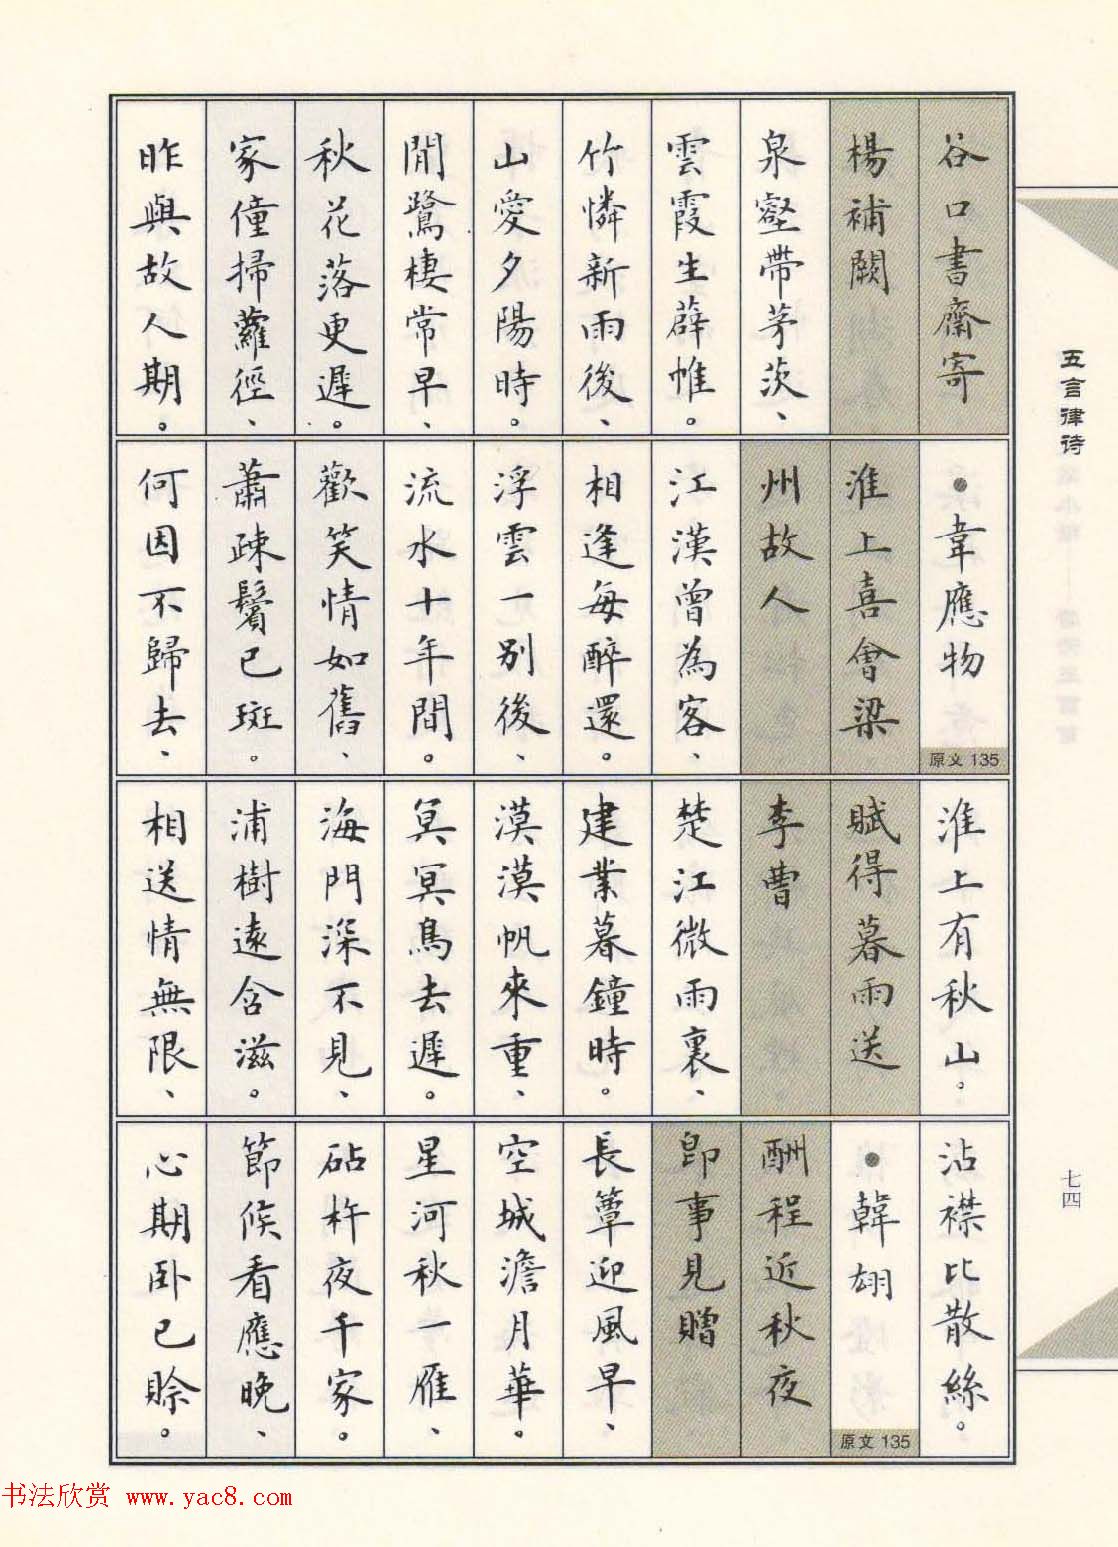 谷口書齋寄
楊補闕
泉壑帶茅茨、
雲霞生薜帷。
竹憐新雨後、
山愛夕陽時。
閒鷺棲常早、
秋花落更遲。
家僮掃蘿徑、
昨與故人期。
●韋應物
原文 135
淮上喜會梁
州故人
江漢曾為客、
相逢每醉還。
浮雲一別後、
流水十年間。
歡笑情如舊、
蕭疎鬢已斑。
何因不歸去、
淮上有秋山。
賦得暮雨送
李曹
楚江微雨裏、
建業暮鐘時。
漠漠帆來重、
冥冥鳥去遲。
海門深不見、
浦樹遠含滋。
相送情無限、
沾襟比散絲。
●韓翃
原文 135
酬程近秋夜
即事見贈
長簟迎風早、
空城澹月華。
星河秋一雁、
砧杵夜千家。
節候看應晚、
心期卧已賒。
五言律诗
七四
书法欣赏 www.yac8.com